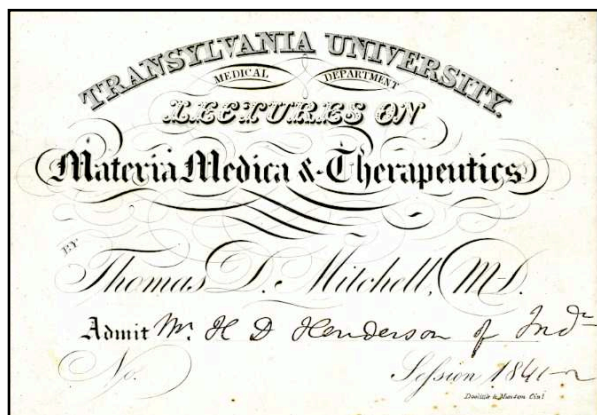 TRANSYLVANIA UNIVERSITY.
MEDICAL DEPARTMENT
LECTURES ON
Materia Medica & Therapeutics
BY
Thomas D. Mitchell, M.D.
Admit Mr. H D Henderson of Inda
No. Session 1841-2
Doolittle & Munson Cint